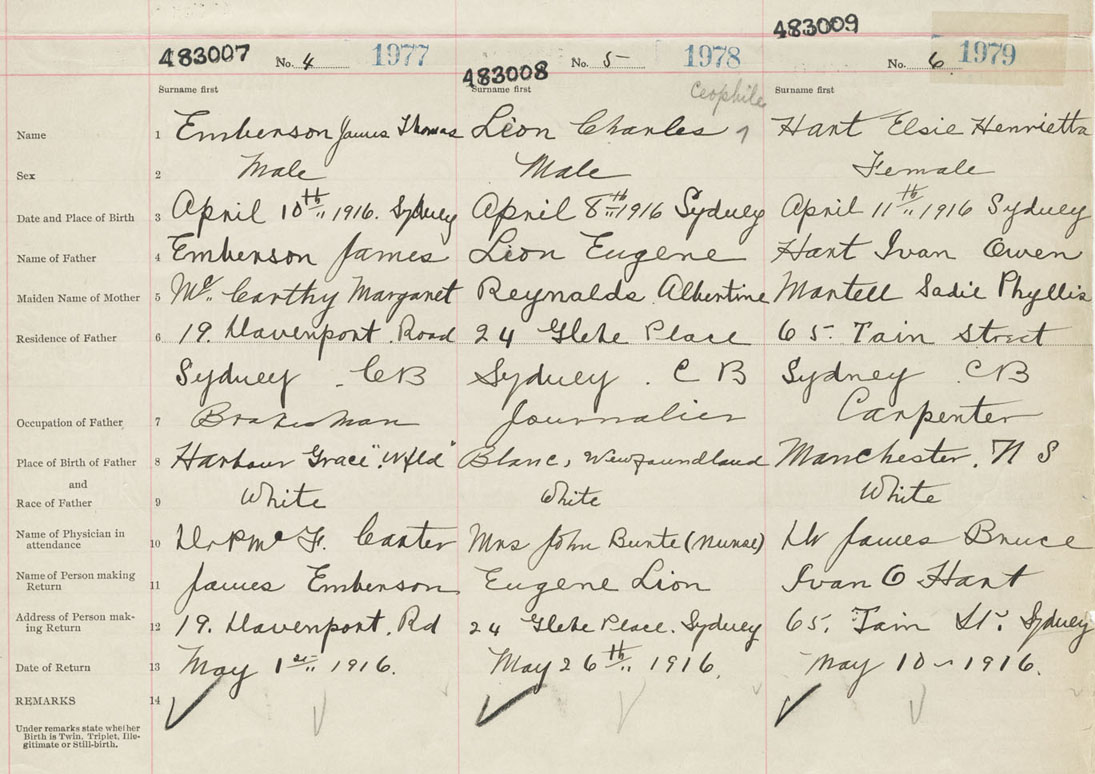 483007 No. 4 1977 483008 No. 5 1978 483009 No. 6 1979
Surname first Surname first Ceophile Surname first
Name 1 Emberson James Thomas Lion Charles Hart Elsie Henrietta
Sex 2 Male Male Female
Date and Place of Birth 3 April 10th 1916. Sydney April 8th 1916 Sydney April 11th 1916 Sydney
Name of Father 4 Emberson James Lion Eugene Hart Ivan Owen
Maiden Name of Mother 5 Mc. Carthy Margaret Reynalds Albertine Martell Sadie Phyllis
Residence of Father 6 19. Davenport Road 24 Glebe Place 65 Tain Street
Sydney CB Sydney. C B Sydney CB
Occupation of Father 7 Brakesman Journalier Carpenter
Place of Birth of Father 8 Harbour Grace "Nfld" Blanc, Newfoundland Manchester. N S
and
Race of Father 9 White White White
Name of Physician in
attendance 10 Dr Mc F. Carter Mrs John Bunte (Nurse) Dr James Bruce
Name of Person making
Return 11 James Emberson Eugene Lion Ivan O Hart
Address of Person mak-
ing Return 12 19. Davenport. Rd 24 Glebe Place. Sydney 65. Tain St. Sydney
Date of Return 13 May 1st 1916. May 26th 1916. May 10 1916.
REMARKS 14
Under remarks state whether
Birth is Twin, Triplet, Ille-
gitimate or Still-birth.